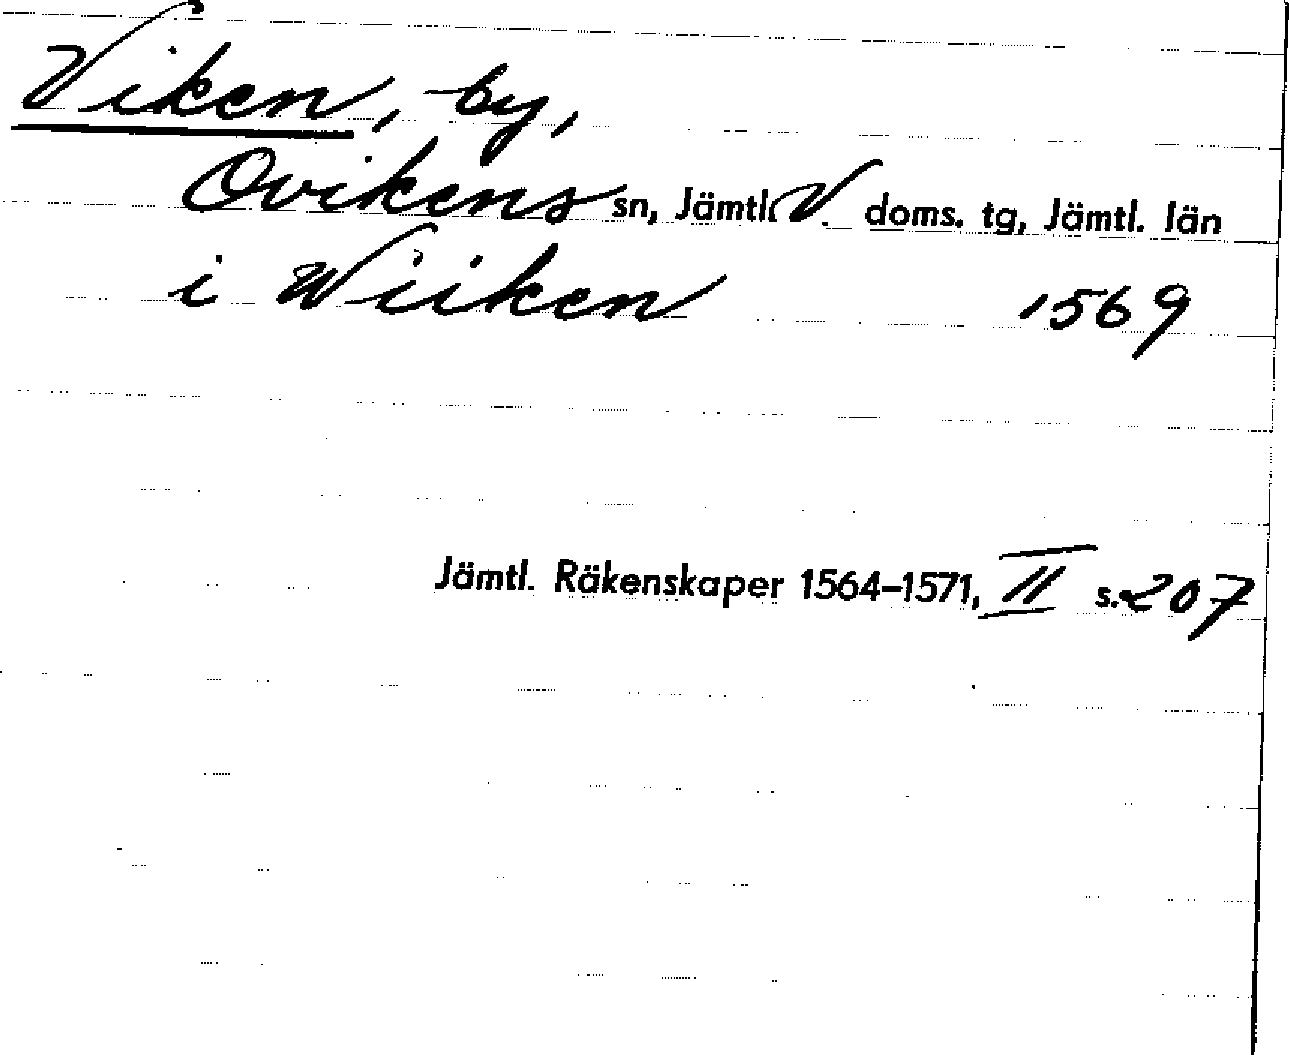 Viken, by,
Ovikens sn, Jämtl. V doms. tg, Jämtl. län
i Wiiken 1569
Jämtl. Räkenskaper 1564-1571, II s. 207